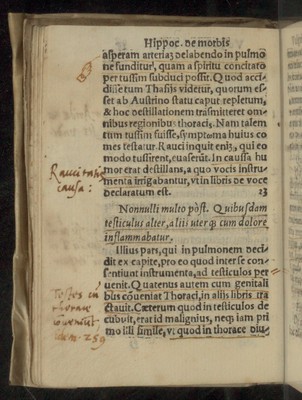 Hippoc. de morbis
asperam arteriaʒ delabendo in pulmo
ne funditur, quam a spiritu concitato
per tussim subduci possit. Quod acci-
disse tum Thasiis videtur, quorum es-
set ab Austrino statu caput repletum,
& hoc destillationem transmitteret om-
nibus regionibus thoracis. Nam talem
tum tussim fuisse, symptoma huius co
mes testatur. Rauci inquit enim, qui eo
modo tussirent, euaserūt. In caussa hu
mor erat destillans, a quo vocis instru-
menta irrigabantur, vt in libris de voce
declaratum est. 23
Rauci
causa:
Nonnulli multo pòst. Quibusdam
testiculus alter, alii uterq; cum dolore
inflammabatur.
Illius pars, qui in pulmonem deci-
dit ex capite, pro eo quod inter se con-
sentiunt instrumenta, ad testiculos per
uenit. Quatenus autem cum genitali
bus cōueniat Thoraci, in aliis libris tra
ctauit. Cæterum quod in testiculos de
cubuit, erat id malignius, neq; iam pri
mo illi simile, vt quod in thorace diu-